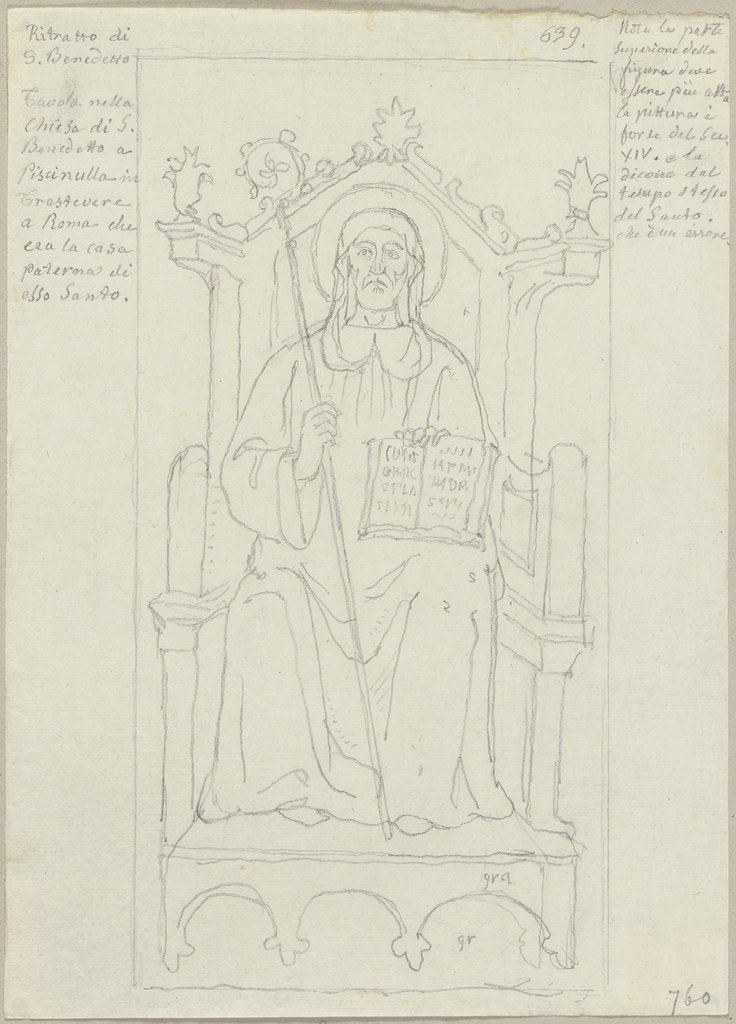 Ritratto di
S. Benedetto
Tavola nella
Chiesa di S.
Benedetto a
Piscinulla in
Trastevere
a Roma che
era la casa
paterna di
esso Santo.
639.
Nota la parte
superiore della
figura deve
essere più alta
la pittura è
forse del Sec.
XIV. e la
dicono del
tempo stesso
del Santo.
che è un errore
gra
gr
760